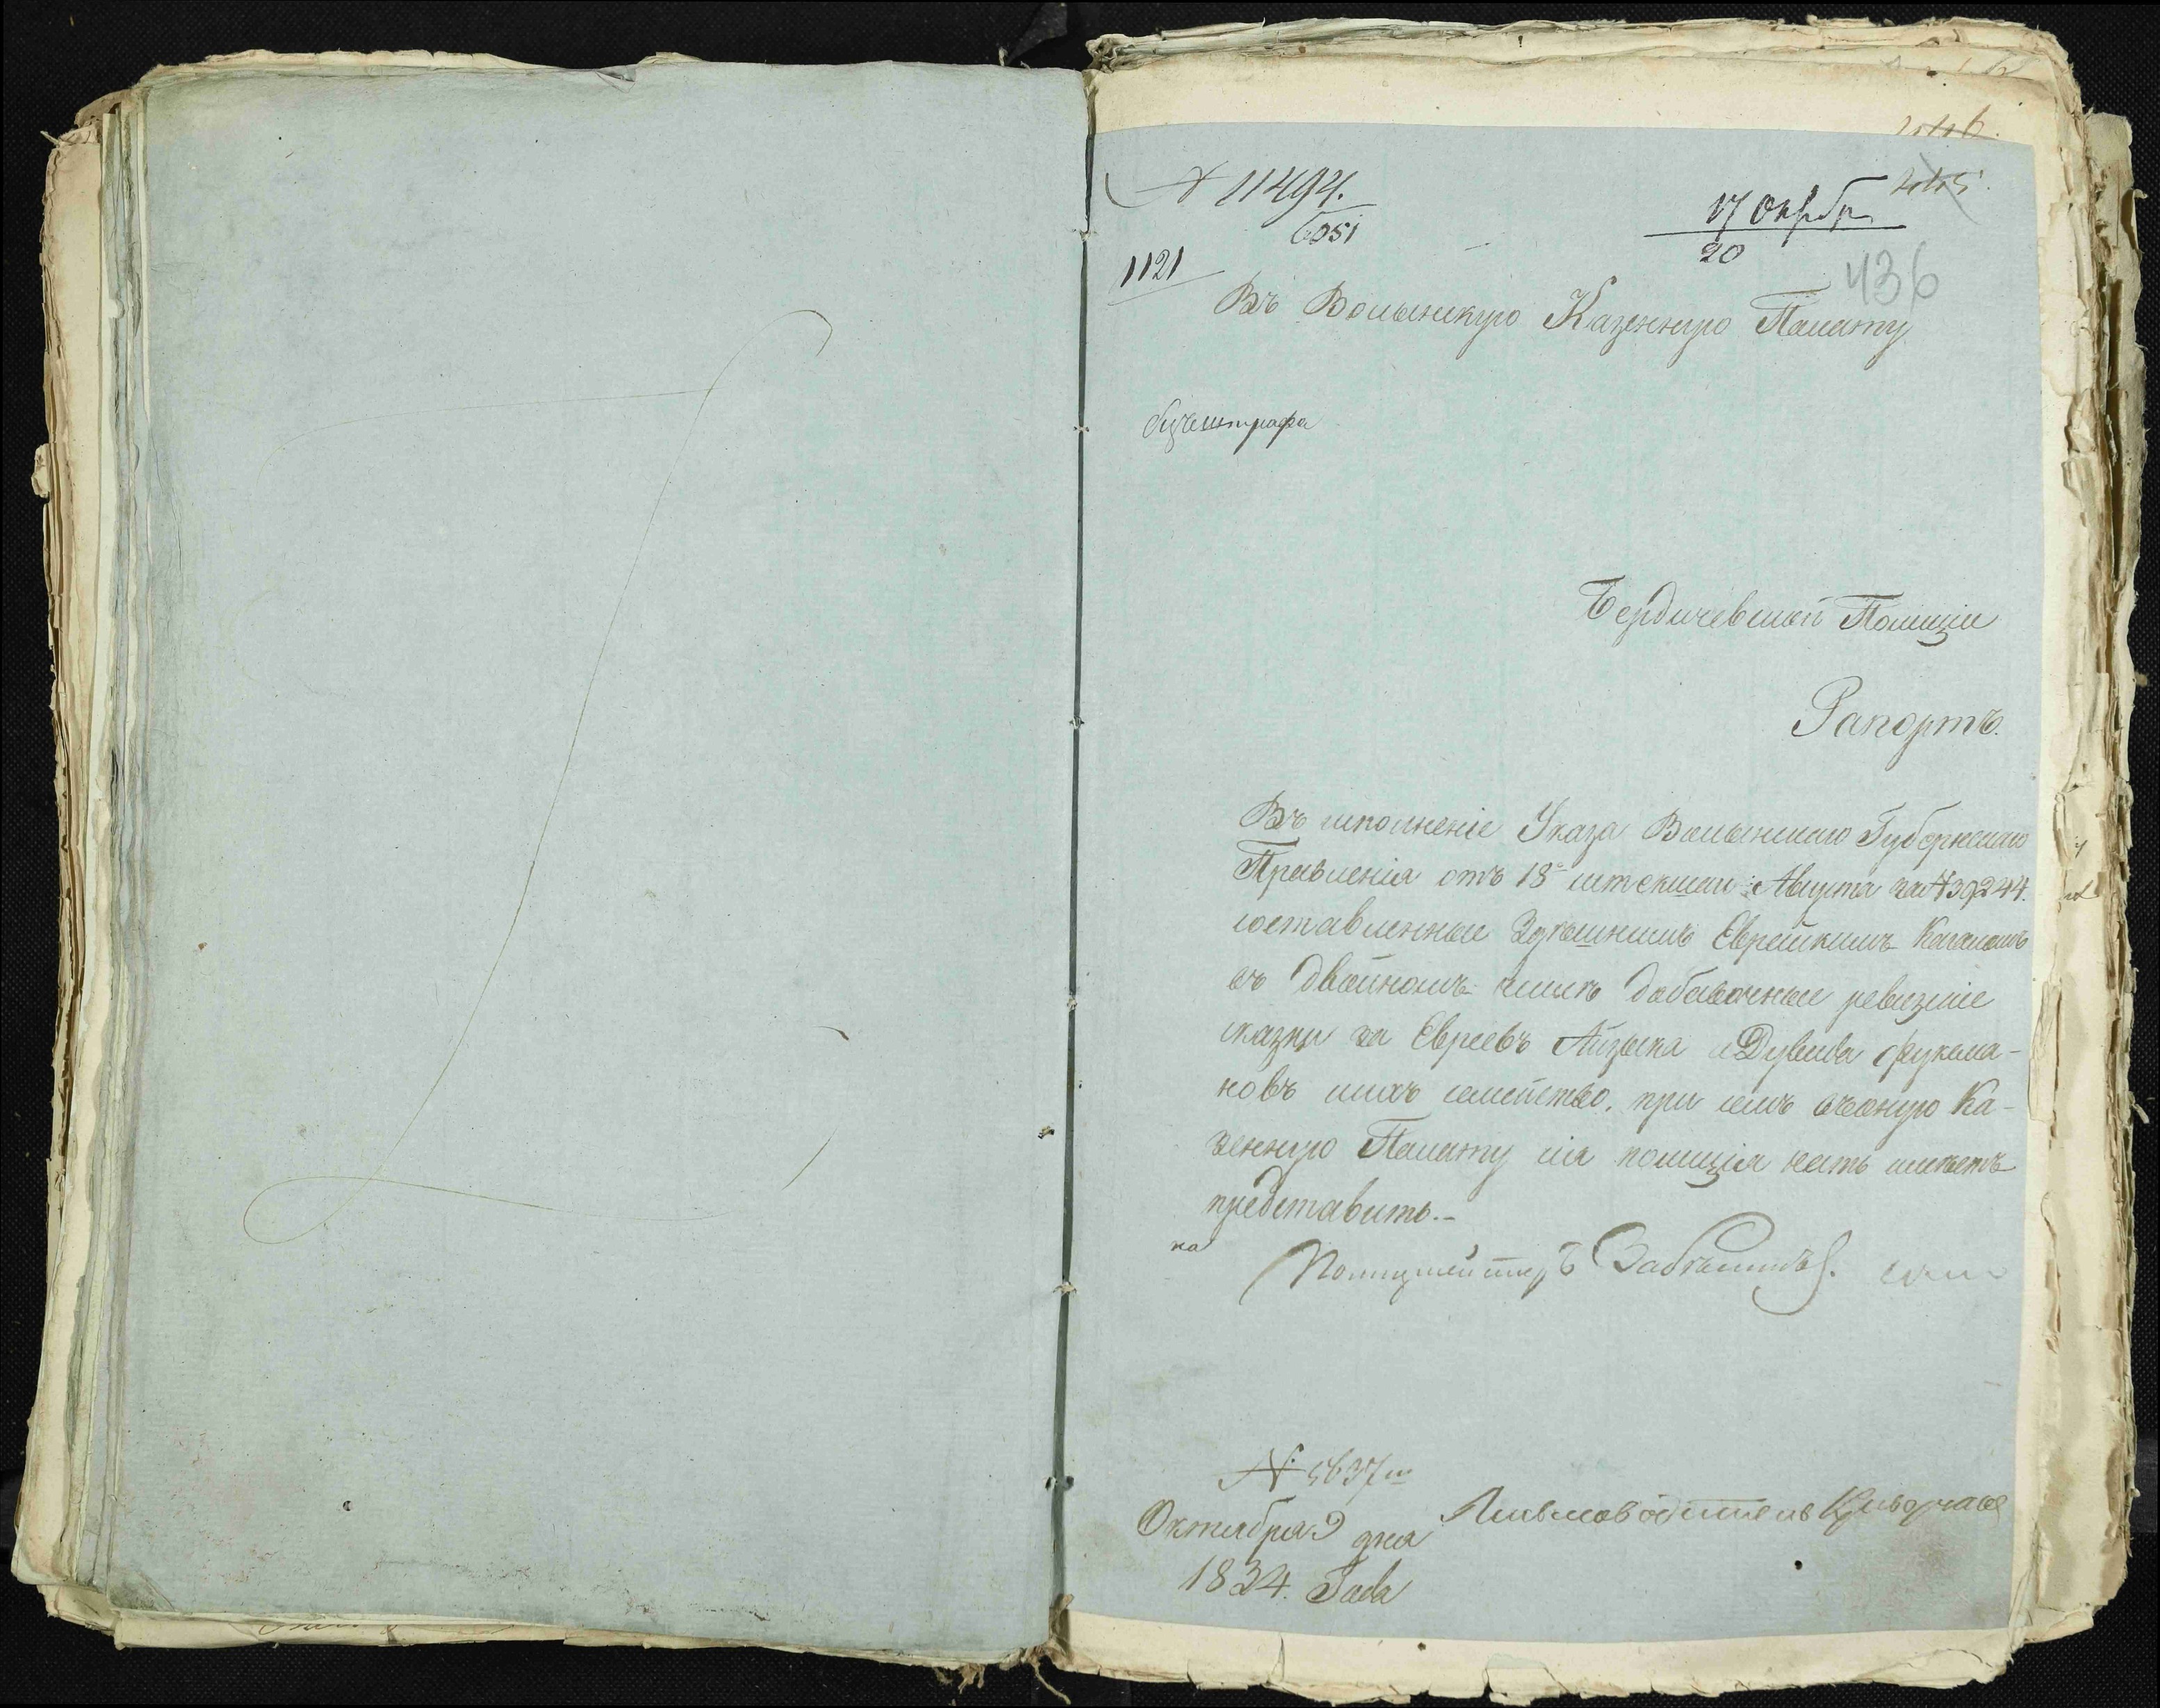 446.
445.
№ 11494.
6051
17 Октбр
20
1121
436
Въ Волынскую Казенную Палату
безъ штрафа
Бердичевской Полиціи
Рапортъ.
Въ исполненіе Указа Волынскаго Губернскаго
Правленія отъ 18º истекшаго Августа за № 39244.
составленные Еврейскимъ Кагаломъ
въ двойномъ числѣ добавочные ревизкіе
сказки за Евреевъ Айзыка и Дувида Фуксма-
новъ и ихъ семейство, при семъ въ оную Ка-
зенную Палату сія полиція честь имѣетъ
представить.-
Полицмейстеръ
№ 5637
Октября 9 дня
1834. Года
Письмоводитель